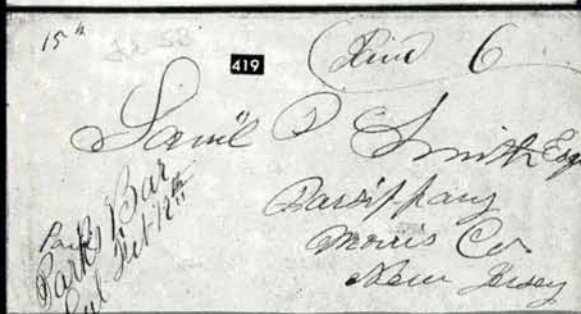 15th
419
6
Saml P Smith Esq
Parsippany
Morris Co
New Jersey
Parks Bar
Cal Feb 12th